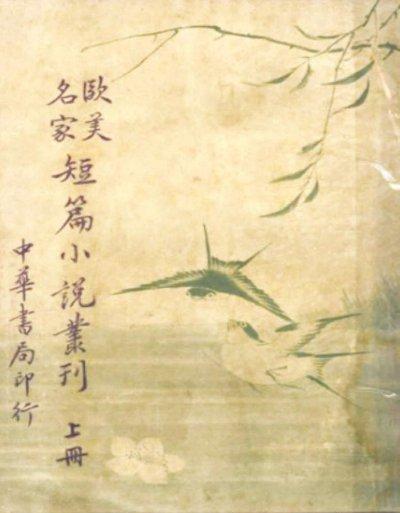 歐美
名家
短篇小說叢刊 上冊
中華書局印行